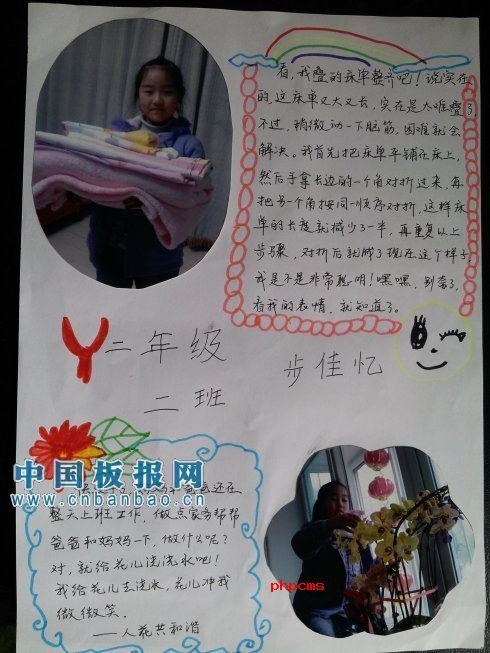 看,我叠的床单整齐吧!说实在
的,这床单又大又长,实在是太难叠了
不过,稍微动一下脑筋,困难就会
解决。我首先把床单平铺在床上,
然后手拿长边的一个角对折过来,再
把另一个角按同一顺序对折,这样床
单的长度就减少了一半,再重复以上
步骤,对折后就成了现在这个样子
我是不是非常聪明!嘿嘿,别夸了,
看我的表情,就知道了。
二年级
二班
步佳忆
中国板报网
www.chbanbao.cn
爸爸还在
整天上班工作,做点家务帮帮
爸爸和妈妈一下,做什么呢?
对,就给花儿浇浇水吧!
我给花儿去浇水,花儿冲我
微微笑.
——人花共和谐
phpcms